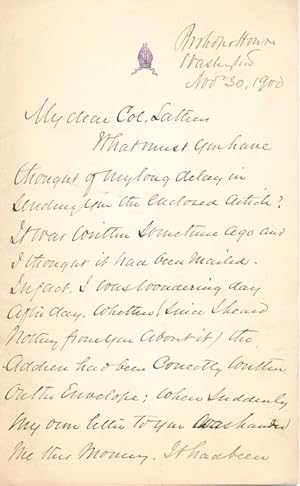 Bishop's House
Washington
Nov 30, 1900
My dear Col. Lathers
What must you have
thought of my long delay in
sending you the enclosed Article?
It was written sometime ago and
I thought it had been mailed.
In fact, I was wondering day
after day. Whether (since I heard
nothing from you about it) the
Address had been correctly written
on the Envelope; when suddenly
my own letter to you was handed
me this morning. It had been